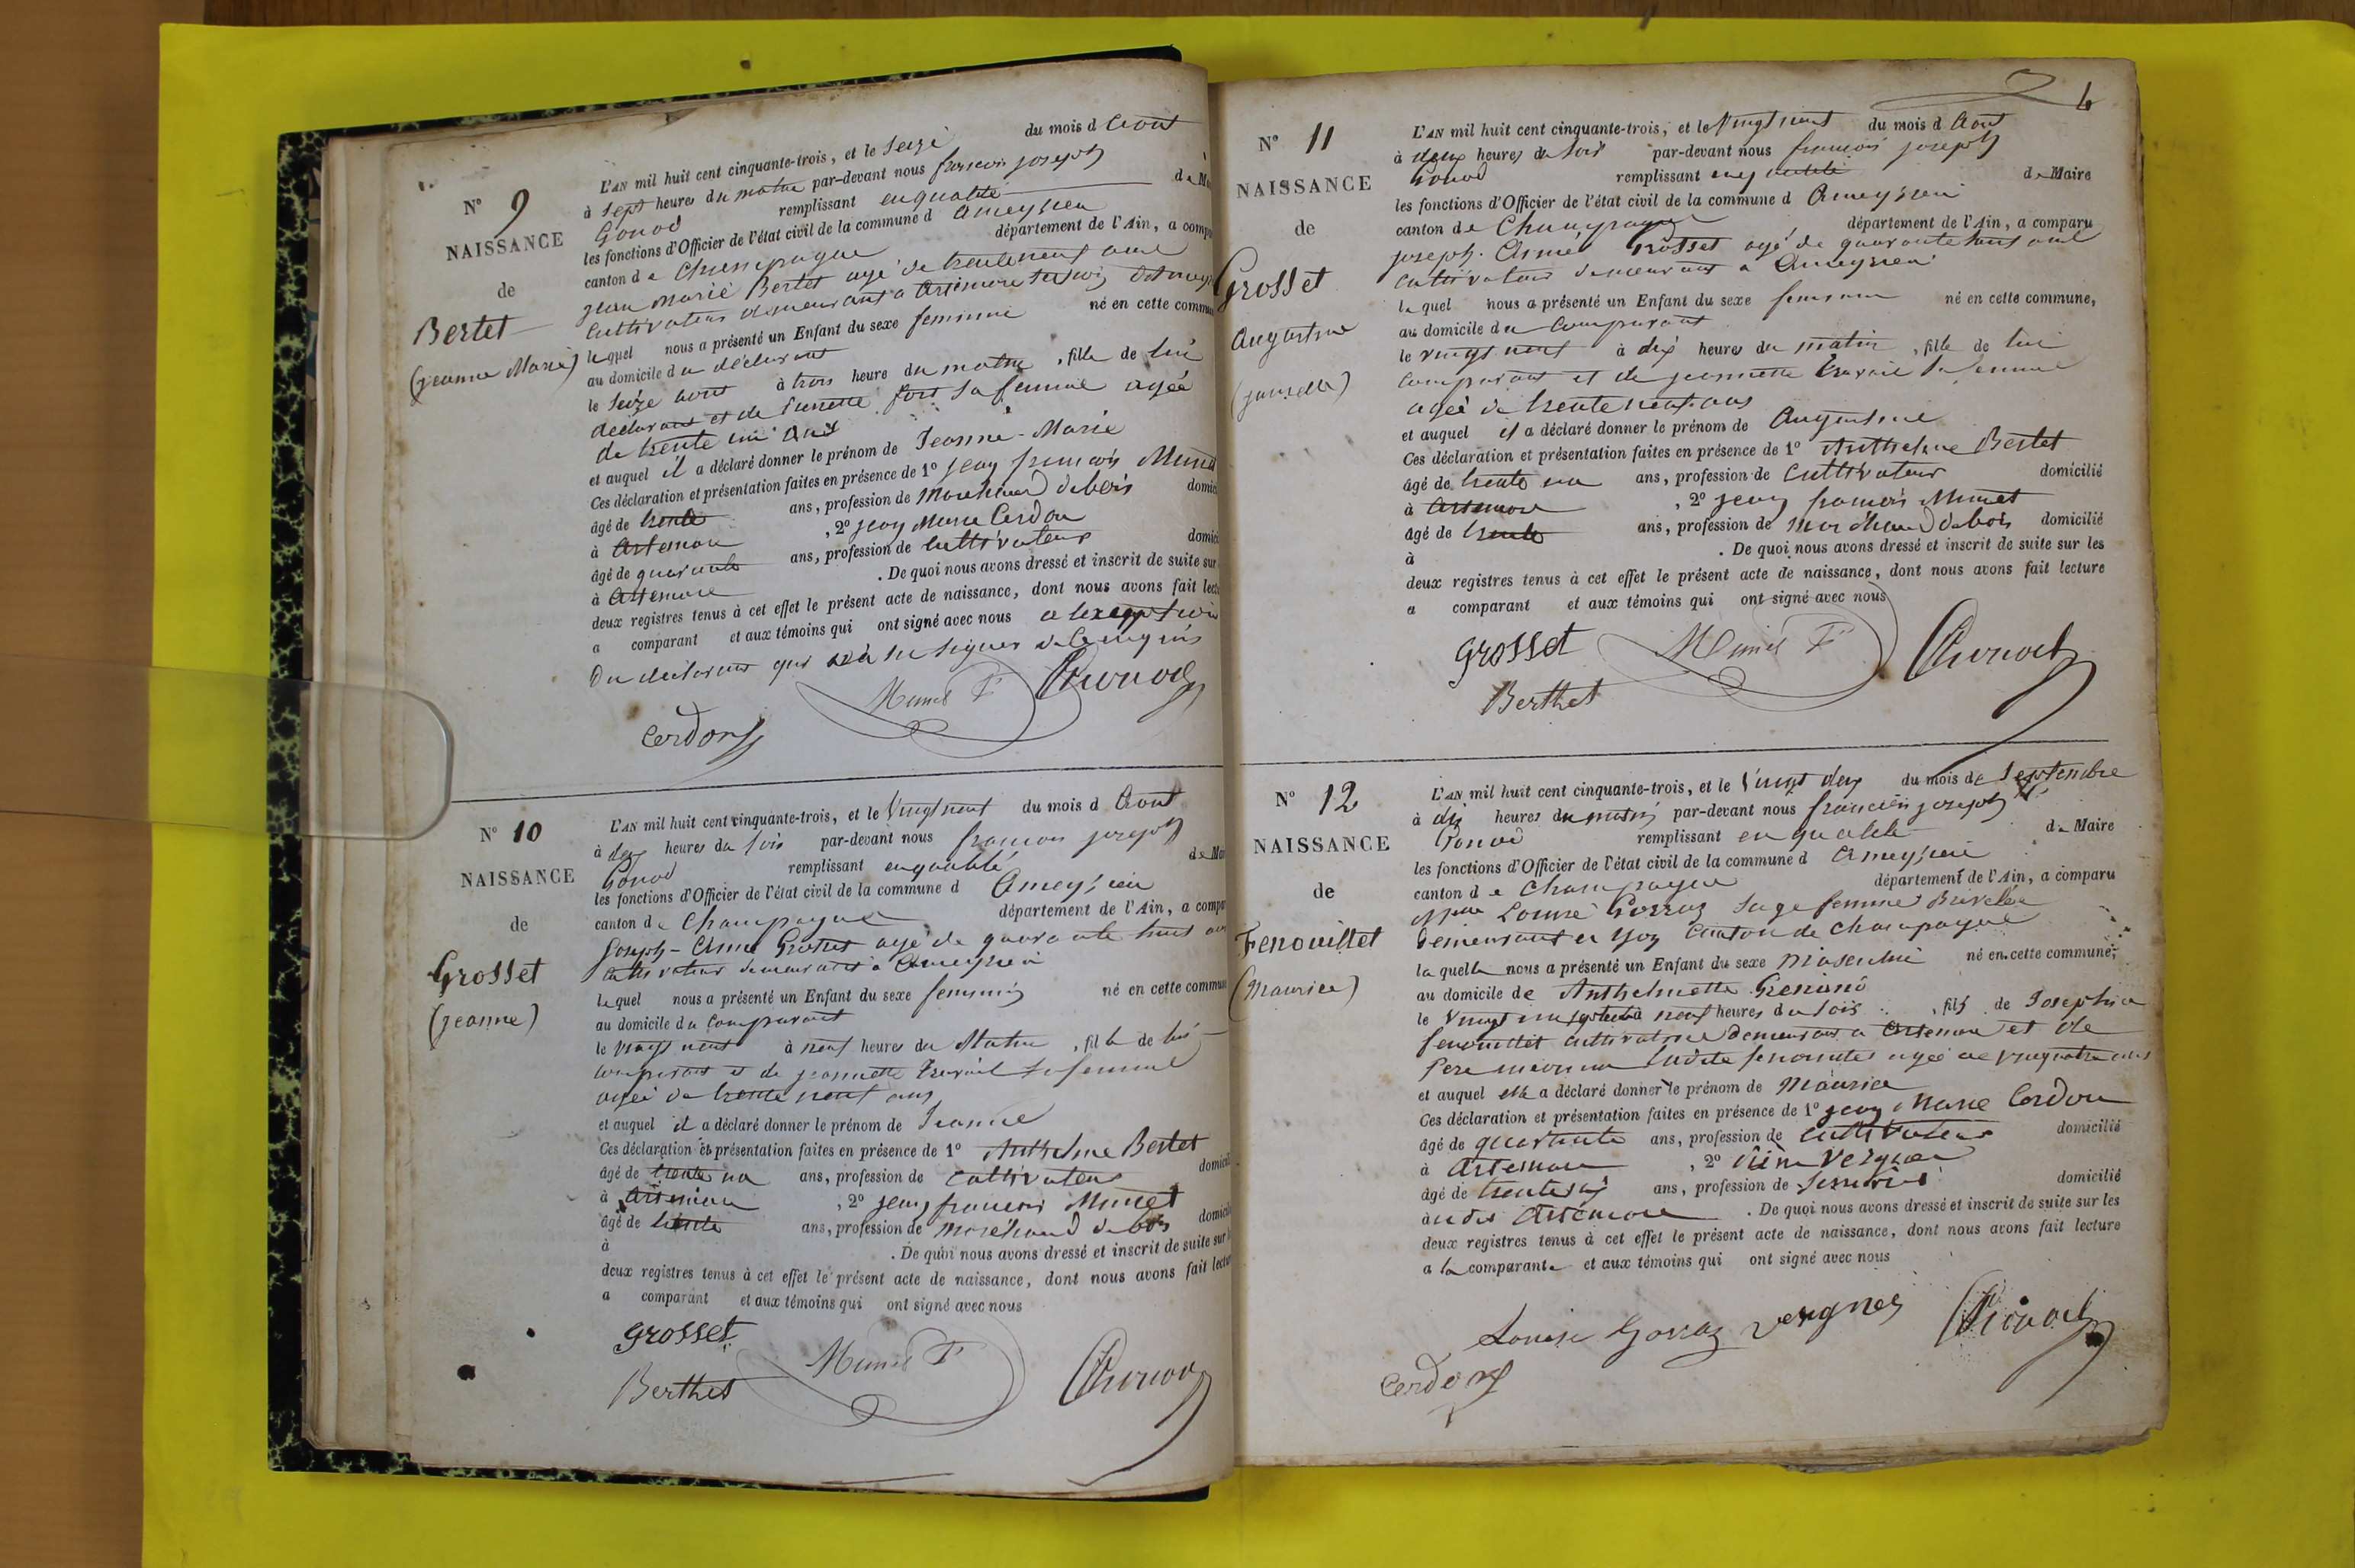 N° 9
NAISSANCE
de
Bertet
(jeanne Marie)
L'AN mil huit cent cinquante-trois, et le Seize du mois d Aout
à Sept heures du matin par-devant nous francois joseph
Gonod remplissant en qualité de
les fonctions d'Officier de l'état civil de la commune d Ameyzieu
canton de Champagne département de l'Ain, a comp
jean Marie Bertet agé de trente neuf ans
Cultivateur demeurant a Artemare
lequel nous a présenté un Enfant du sexe feminin né en cette commu
au domicile du déclarant
le Seize aout à trois heure du matin, fille de lui
déclarant et de fort Sa femme agée
de trente un ans
et auquel il a déclaré donner le prénom de Jeanne-Marie
Ces déclaration et présentation faites en présence de 1° jean francois
âgé de trente ans, profession de Marchand de bois domici
à Artemare, 2° jean Marie Cerdon
âgé de quarante ans, profession de Cultivateur domici
à Artemare. De quoi nous avons dressé et inscrit de suite sur
deux registres tenus à cet effet le présent acte de naissance, dont nous avons fait lect
a comparant et aux témoins qui ont signé avec nous a lexeption
du declarant qui na su signer de ce requis
Gonod
Cerdon
N° 10
NAISSANCE
de
Grosset
(jeanne)
L'AN mil huit cent cinquante-trois, et le Vingt neuf du mois d Aout
à deux heures du soir par-devant nous francois joseph
Gonod remplissant en qualité de
les fonctions d'Officier de l'état civil de la commune d Ameyzieu
canton de Champagne département de l'Ain, a compa
Joseph-Aimé Grosset agé de quarante huit ans
Cultivateur demeurant a Ameyzieu
lequel nous a présenté un Enfant du sexe feminin né en cette commun
au domicile du Comparant
le vingt neuf à neuf heures du Matin, fille de lui
comparant et de jeannette Sa femme
agée de trente neuf ans
et auquel il a déclaré donner le prénom de Jeanne
Ces déclaration et présentation faites en présence de 1° Anthelme Bertet
âgé de trente un ans, profession de Cultivateur domicili
à Artemare, 2° jean francois
âgé de trente ans, profession de Marchand de bois domicili
à. De quoi nous avons dressé et inscrit de suite sur
deux registres tenus à cet effet le présent acte de naissance, dont nous avons fait lectu
a comparant et aux témoins qui ont signé avec nous
Grosset
Berthet Gonod
N° 11
NAISSANCE
de
Grosset
Augustine
L'AN mil huit cent cinquante-trois, et le Vingt neuf du mois d Aout
à deux heures du Soir par-devant nous francois joseph
Gonod remplissant en qualité de Maire
les fonctions d'Officier de l'état civil de la commune d Ameyzieu
canton de Champagne département de l'Ain, a comparu
joseph. Aimé Grosset agé de quarante huit ans
Cultivateur demeurant a Ameyzieu
lequel nous a présenté un Enfant du sexe feminin né en cette commune,
au domicile du Comparant
le vingt neuf à dix heures du matin, fille de lui
comparant et de jeannette Sa femme
agée de trente neuf ans
et auquel il a déclaré donner le prénom de Augustine
Ces déclaration et présentation faites en présence de 1° Anthelme Bertet
âgé de trente un ans, profession de Cultivateur domicilié
à Artemare, 2° jean francois
âgé de trente ans, profession de Marchand de bois domicilié
à. De quoi nous avons dressé et inscrit de suite sur les
deux registres tenus à cet effet le présent acte de naissance, dont nous avons fait lecture
a comparant et aux témoins qui ont signé avec nous
Grosset Gonod
Berthet
N° 12
NAISSANCE
de
Fenouillet
(Maurice)
L'AN mil huit cent cinquante-trois, et le Vingt deux du mois de Septembre
à dix heures du matin par-devant nous francois joseph
Gonod remplissant en qualité de Maire
les fonctions d'Officier de l'état civil de la commune d Ameyzieu
canton de Champagne département de l'Ain, a comparu
Louise Gorraz Sage femme
demeurant a Yon Canton de Champagne
laquelle nous a présenté un Enfant du sexe masculin né en cette commune,
au domicile de Anthelmette
le Vingt un septembre à neuf heures du soir, fils de Josephine
fenouillet cultivatrice demeurant a Artemare et de
Pere inconnu Ladite fenouillet agée de
et auquel elle a déclaré donner le prénom de Maurice
Ces déclaration et présentation faites en présence de 1° jean Marie Cerdon
âgé de quarante ans, profession de Cultivateur domicilié
à Artemare, 2°
âgé de trente six ans, profession de domicilié
à Artemare. De quoi nous avons dressé et inscrit de suite sur les
deux registres tenus à cet effet le présent acte de naissance, dont nous avons fait lecture
a la comparante et aux témoins qui ont signé avec nous
Louise Gorraz Vergnes Gonod
Cerdon